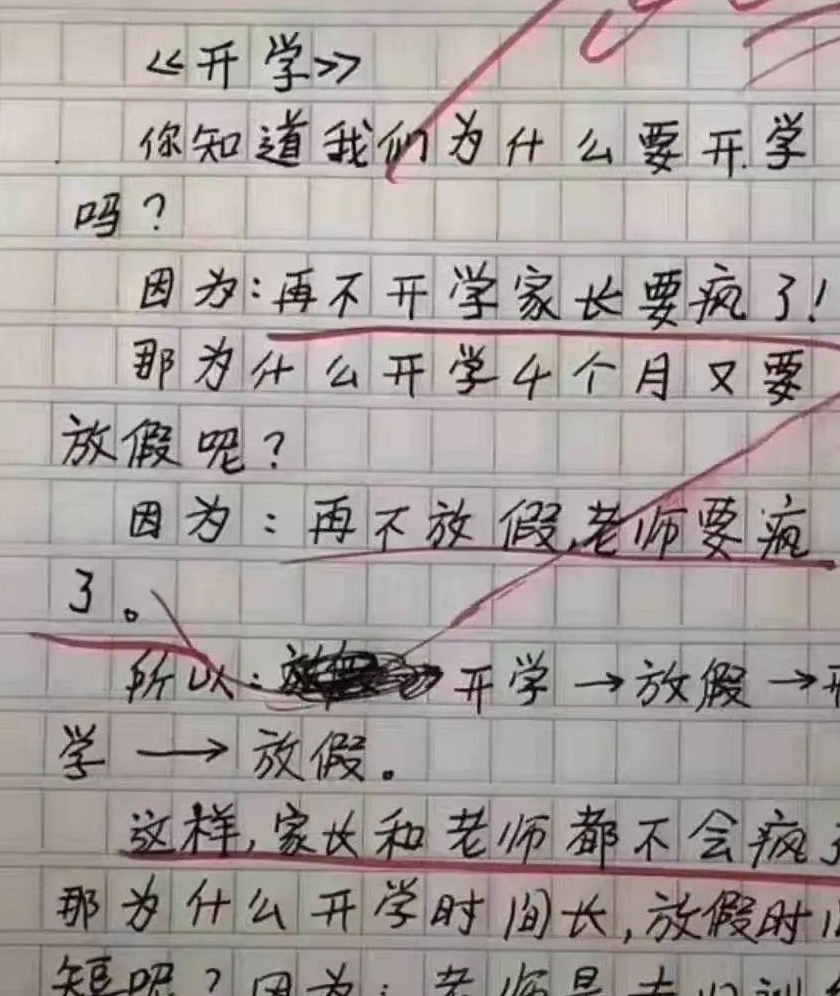 《开学》
你知道我们为什么要开学
吗?
因为:再不开学家长要疯了!
那为什么开学4个月又要
放假呢?
因为:再不放假,老师要疯
了。
所以: 开学→放假→开
学→放假。
这样,家长和老师都不会疯了
那为什么开学时间长,放假时间
短呢?因为:老师是